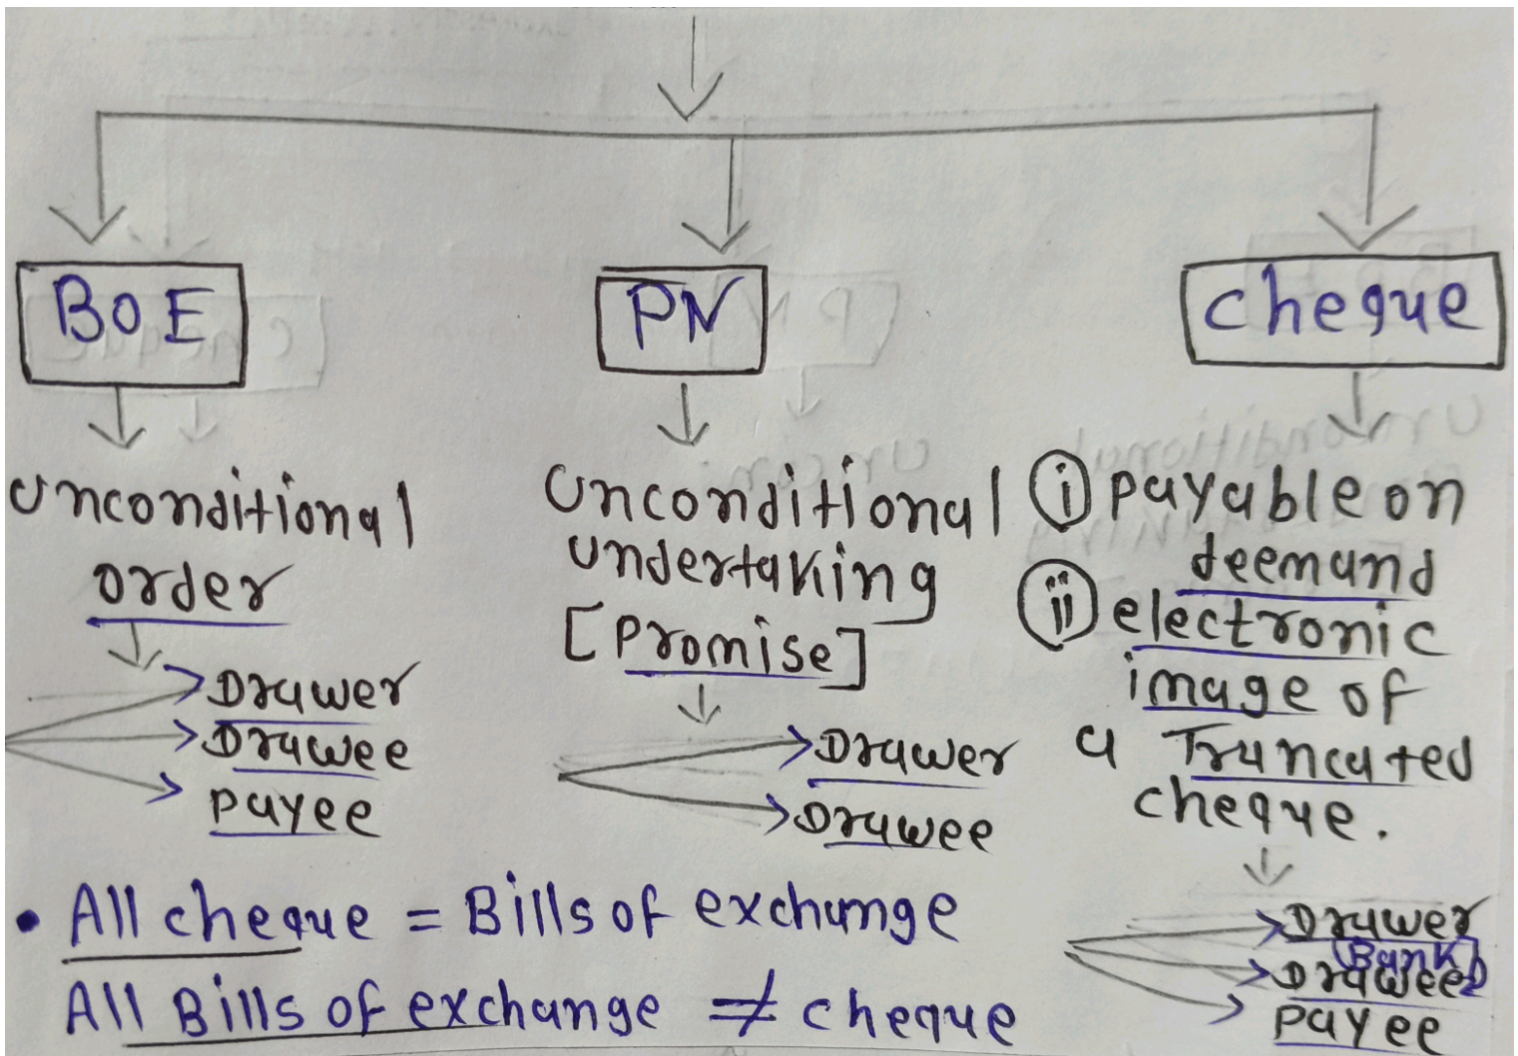 BOE
PN
cheque
unconditional
order
Drawer
Drawee
payee
unconditional
undertaking
[Promise]
Drawer
Drawee
(i) payable on
deemand
(ii) electronic
image of
a Truncated
cheque.
Drawer
(Bank)
Drawee
payee
• All cheque = Bills of exchange
All Bills of exchange ≠ cheque